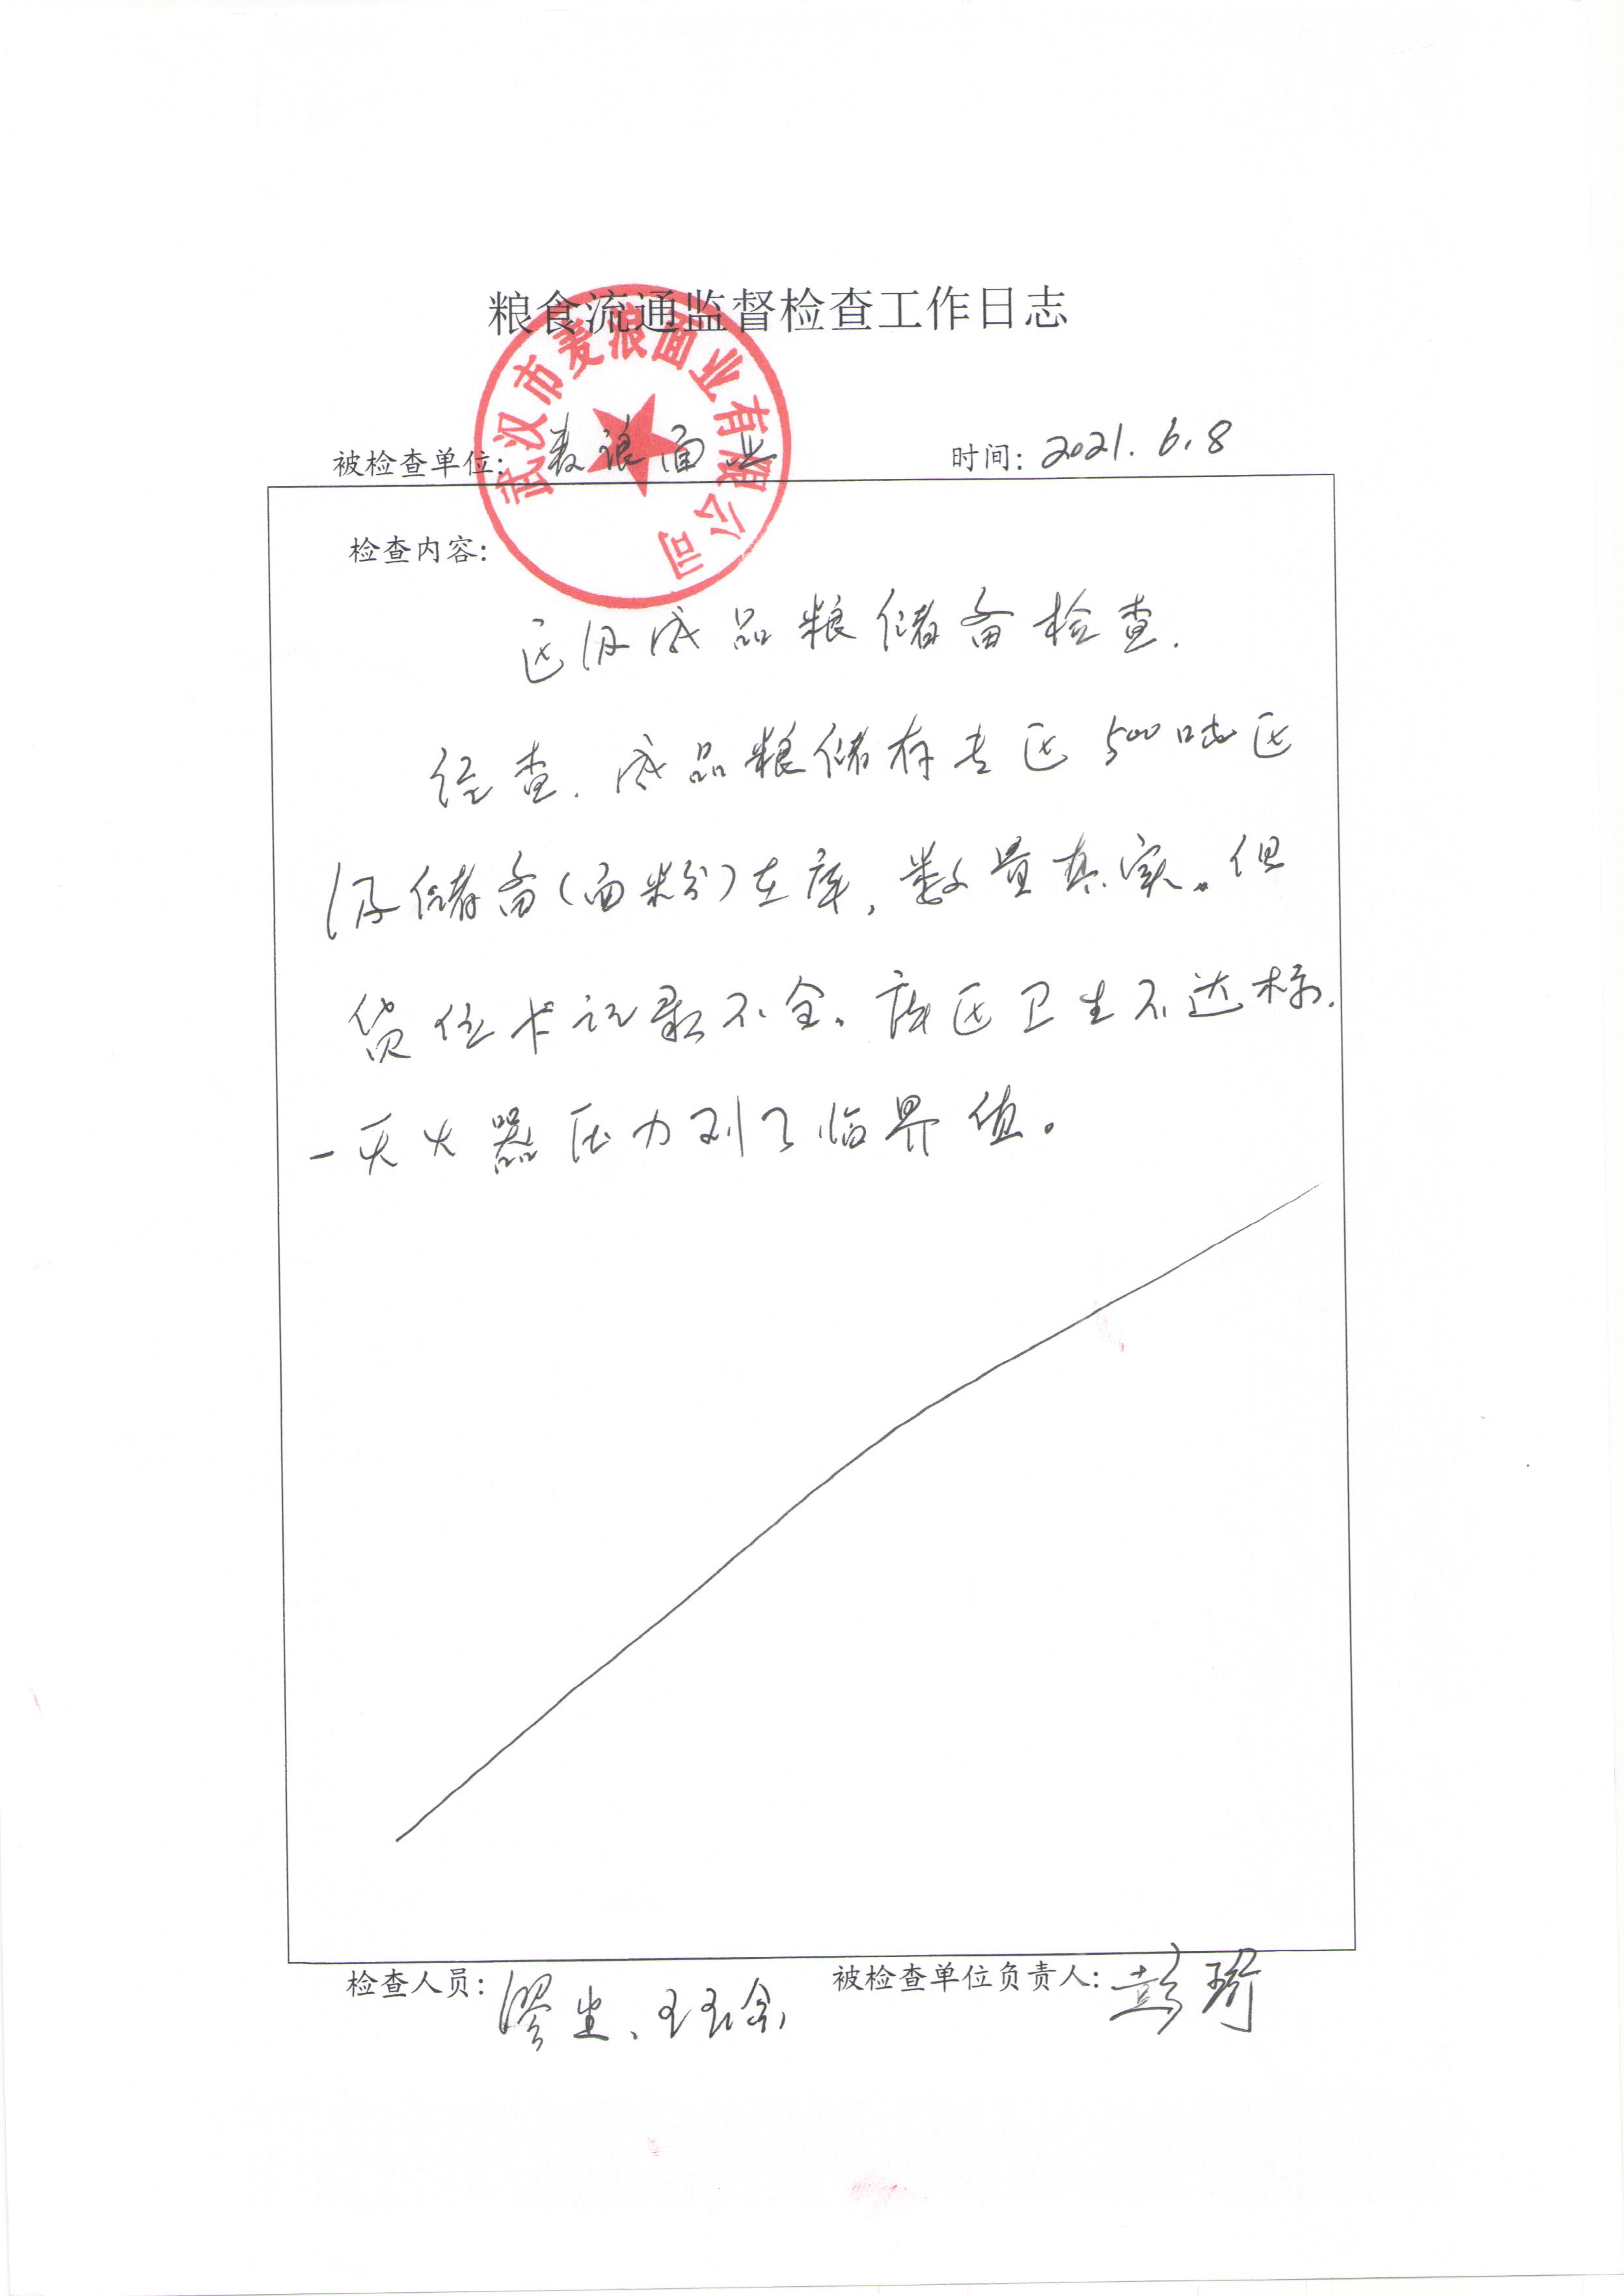 粮食流通监督检查工作日志
武汉市麦浪面业有限公司
被检查单位: 麦浪面业 时间: 2021.6.8
检查内容:
区级成品粮储备检查.
经查.成品粮储存专区500吨区
级储备(面粉)在库,数量真实。但
货位卡记录不全。库区卫生不达标.
一灭火器压力到了临界值。
检查人员: 被检查单位负责人: 彭琦